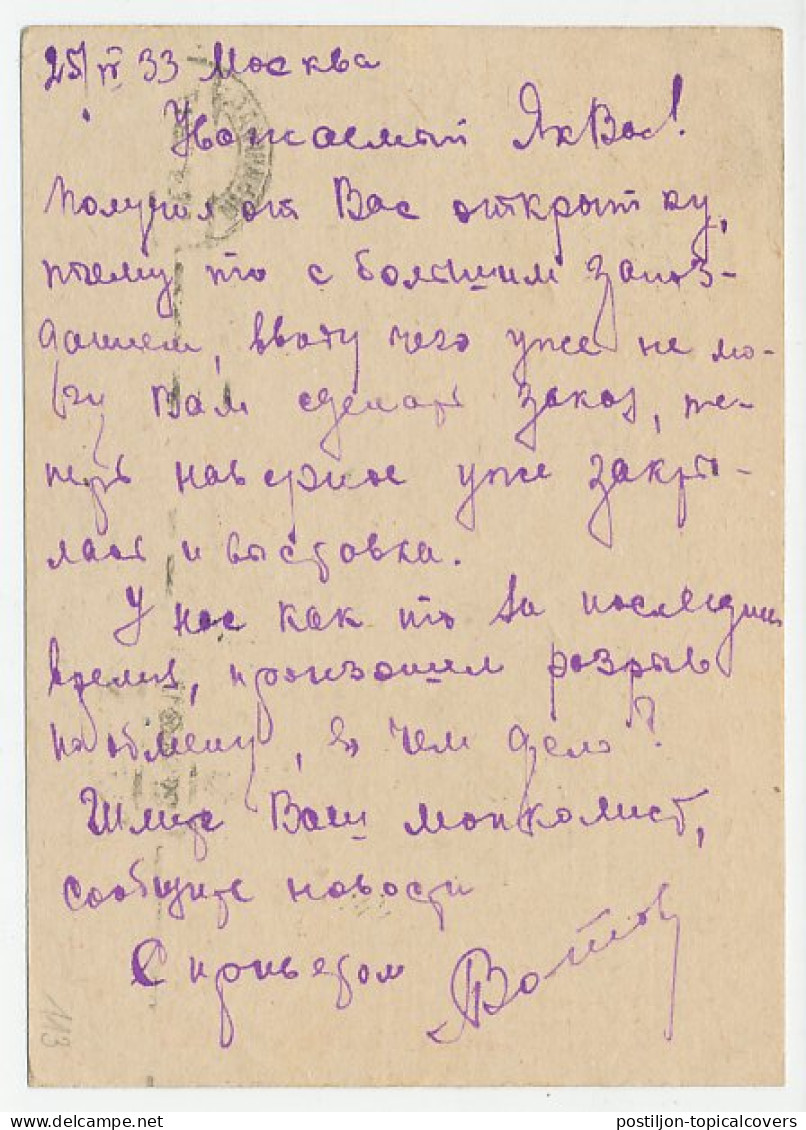 25/IV 33 Москва
Уважаемый Як Вас!
Получил от Вас открытку,
с большим запоз-
данием, ввиду чего уже не мо-
гу Вам сделать заказ, те-
перь наверное уже закры-
лась и выставка.
У нас как то за последнее
время, произошел разрыв
по обмену, в чем дело?
Шлите Ваш манколист,
сообщите новости
С приветом
113
postiljon-topicalcovers.com